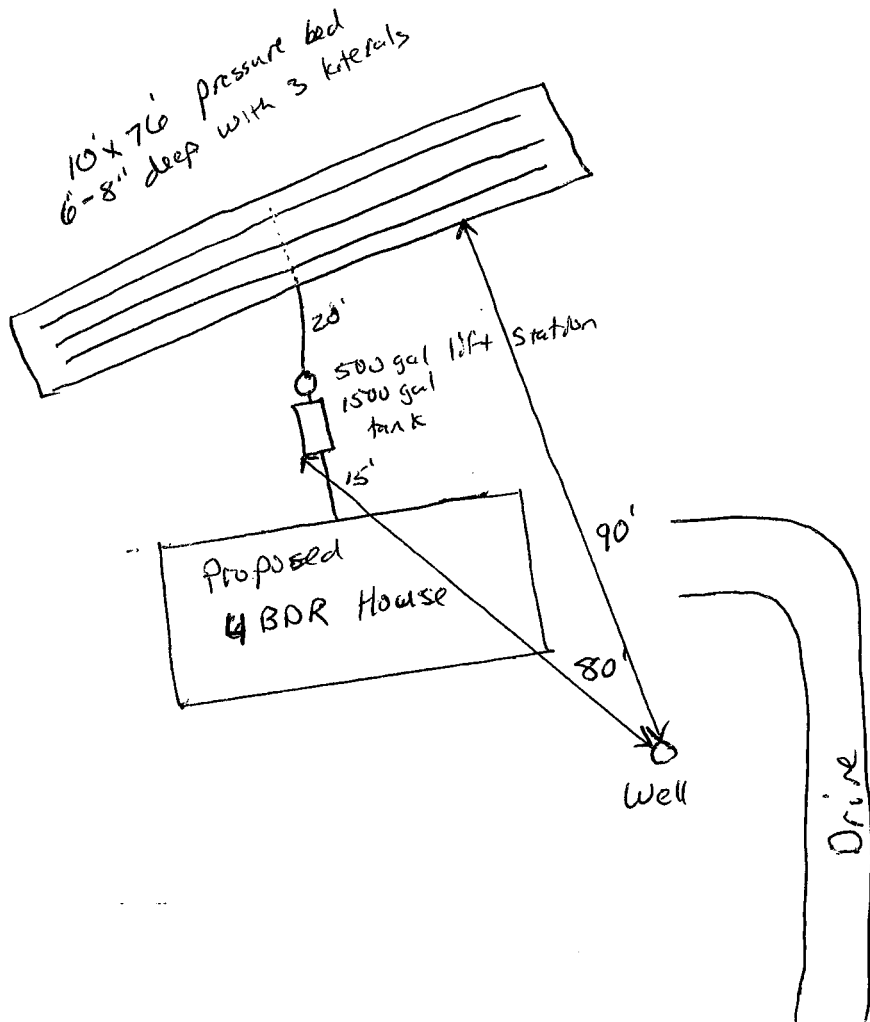 10' x 76' pressure bed
6-8" deep with 3 laterals
20'
500 gal lift station
1500 gal
tank
15'
Proposed
4 BDR House
90'
80'
Well
Drive